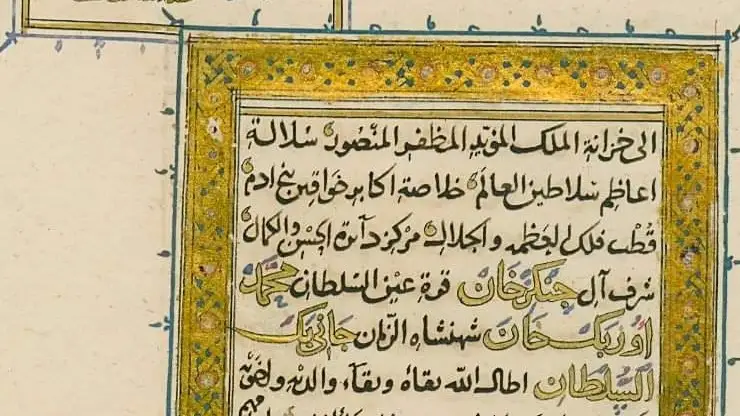 الى خزانة الملك المؤيد المظفر المنصور سلالة
اعاظم سلاطين العالم خلاصة اكابر خواقين بنى ادم
قطب فلك العظمة والجلال مركز دآئرة الحسن والكمال
شرف آل جنكزخان قرة عين السلطان محمد
اوزبك خان شهنشاه الزمان جانى بك
السلطان اطال الله بقاه وبقاء والديه